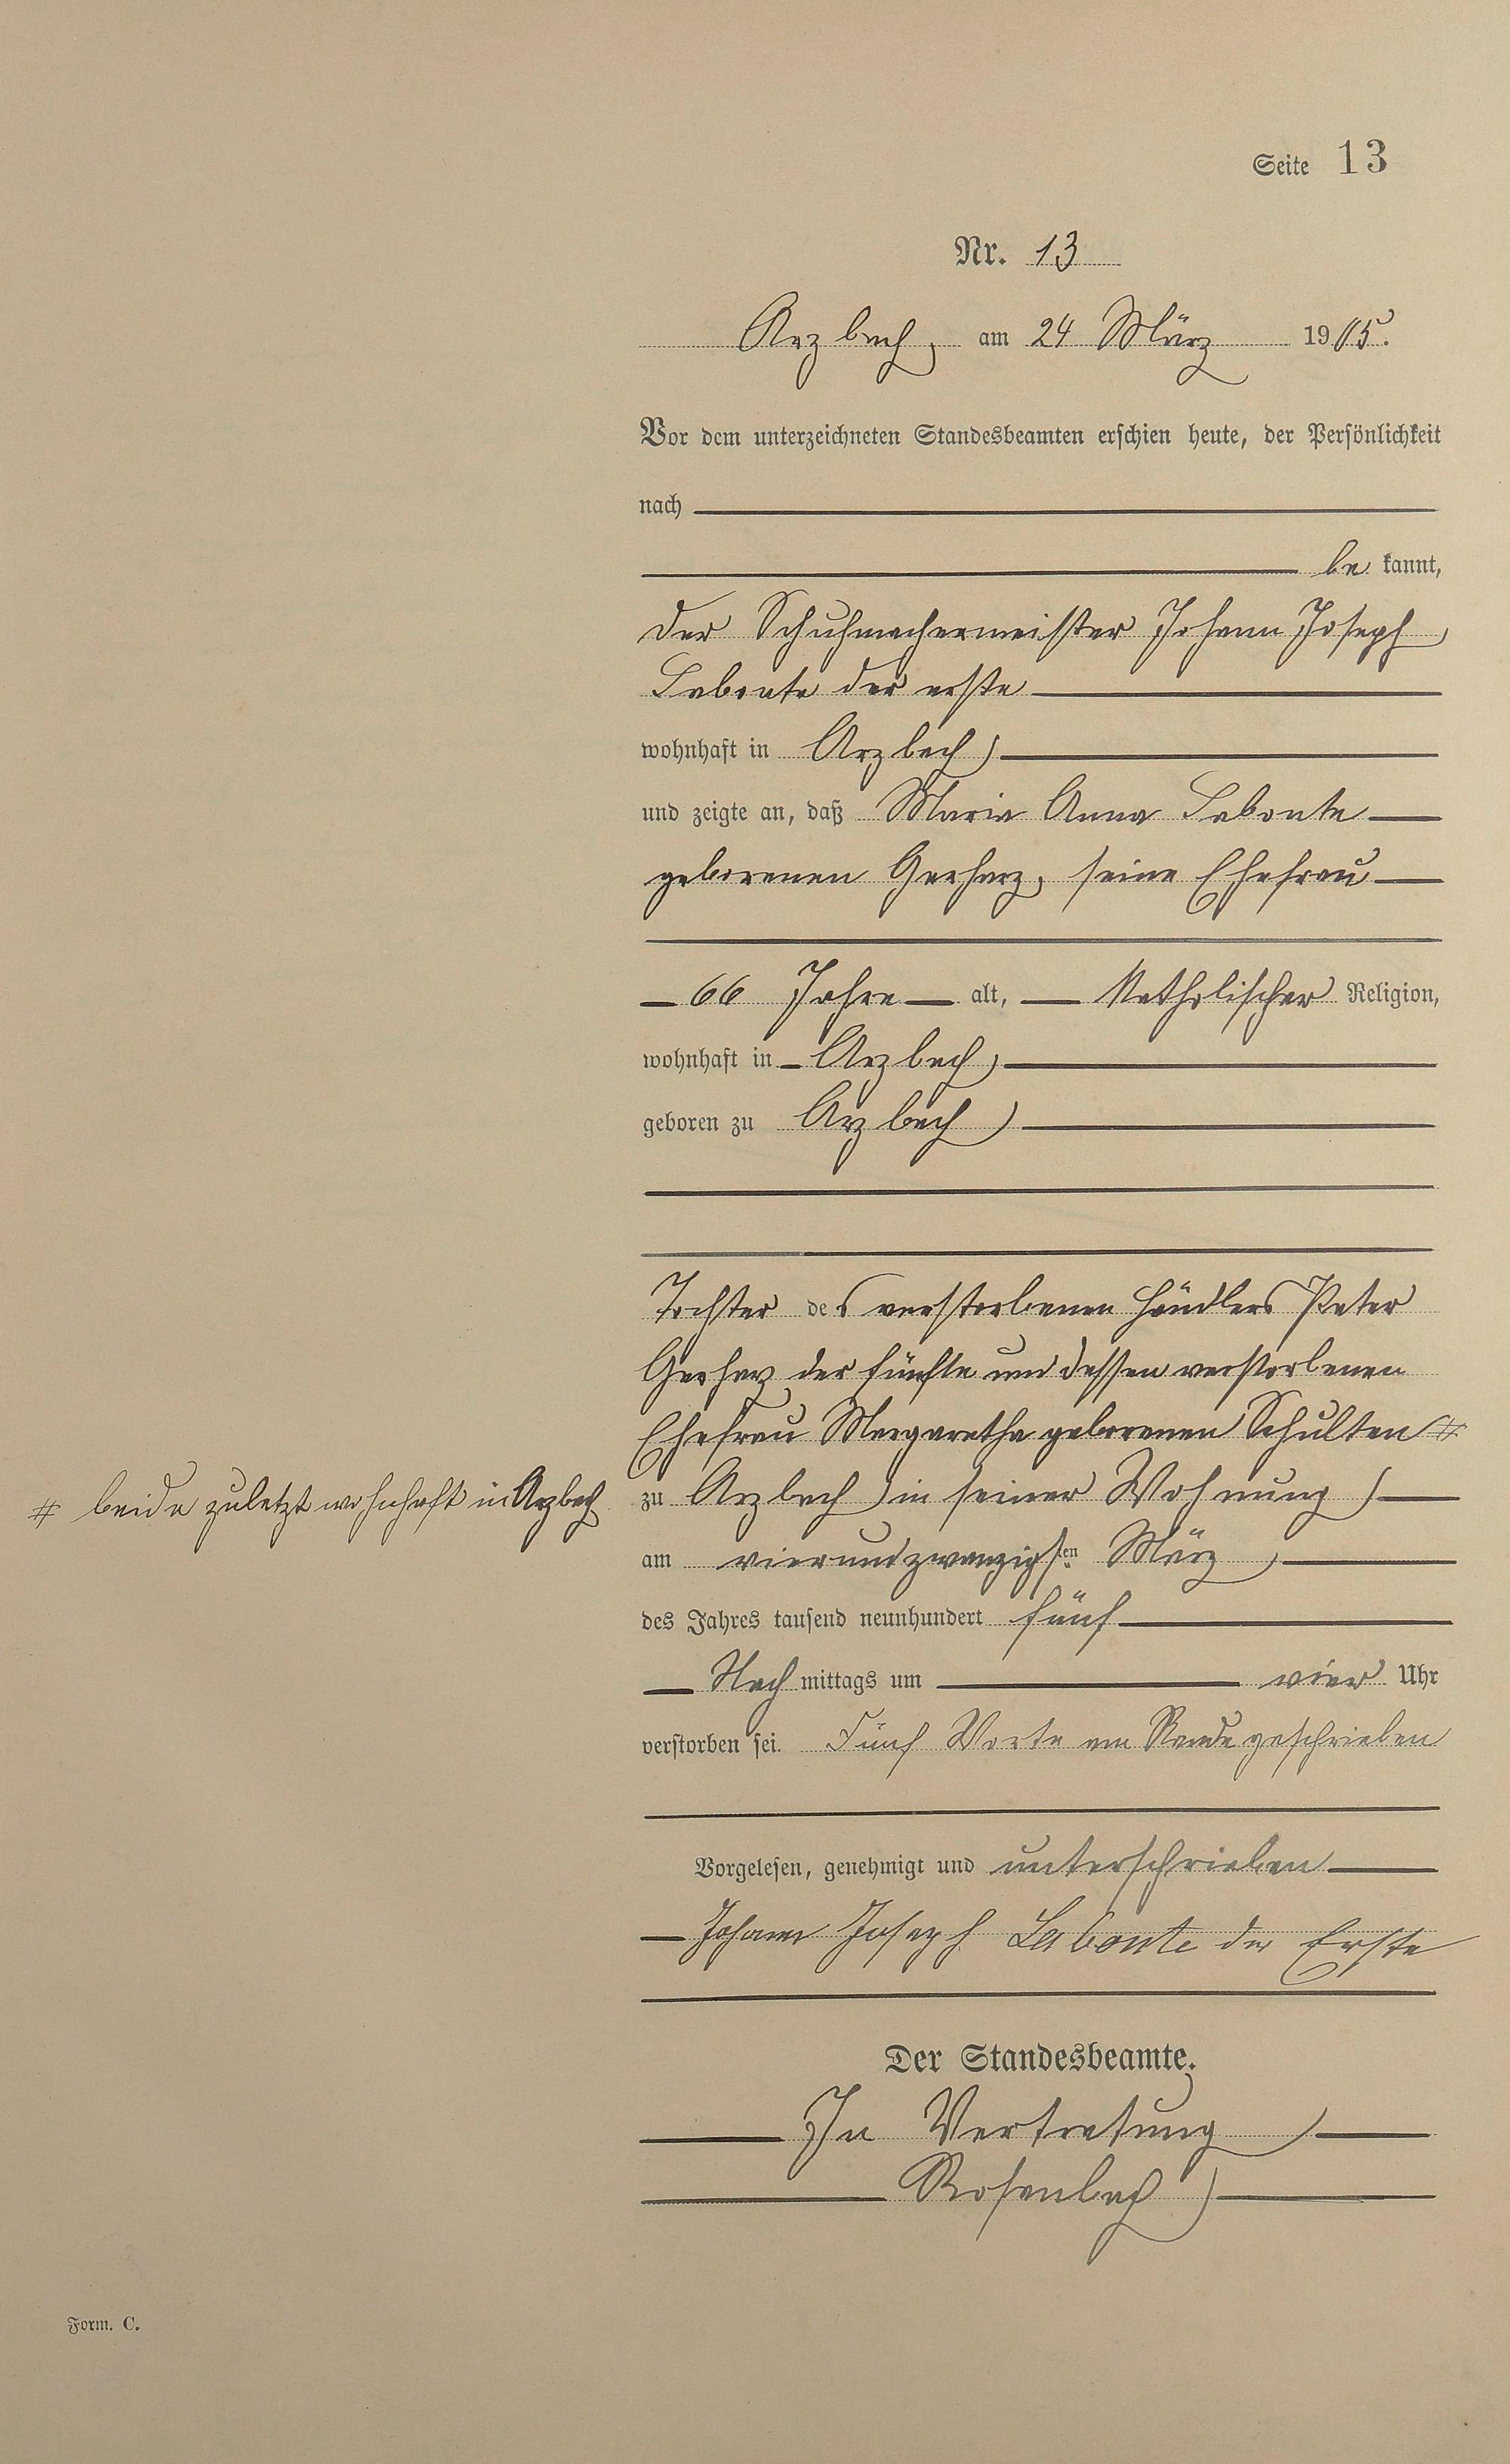 Seite 13
Nr. 13
Arzbach, am 24 März 1905.
Vor dem unterzeichneten Standesbeamten erschien heute, der Persönlichkeit
nach
be kannt,
der Schuhmachermeister Johann Joseph
Labonte der erste
wohnhaft in Arzbach,
und zeigte an, daß Maria Anna Labonte
geborenen Gerharz, seine Ehefrau
66 Jahre alt, Katholischer Religion,
wohnhaft in Arzbach,
geboren zu Arzbach,
Tochter des verstorbenen Händlers Peter
Gerharz der fünfte und dessen verstorbenen
Ehefrau Margaretha geborenen Schulten #
# beide zuletzt wohnhaft in Arzbach
zu Arzbach, in seiner Wohnung,
am vierundzwanzigsten März,
des Jahres tausend neunhundert fünf
Nach mittags um vier Uhr
verstorben sei. Fünf Worte am Rande geschrieben
Vorgelesen, genehmigt und unterschrieben
Johann Joseph Labonte der Erste
Der Standesbeamte.
In Vertretung,
Rosenbach,
Form. C.